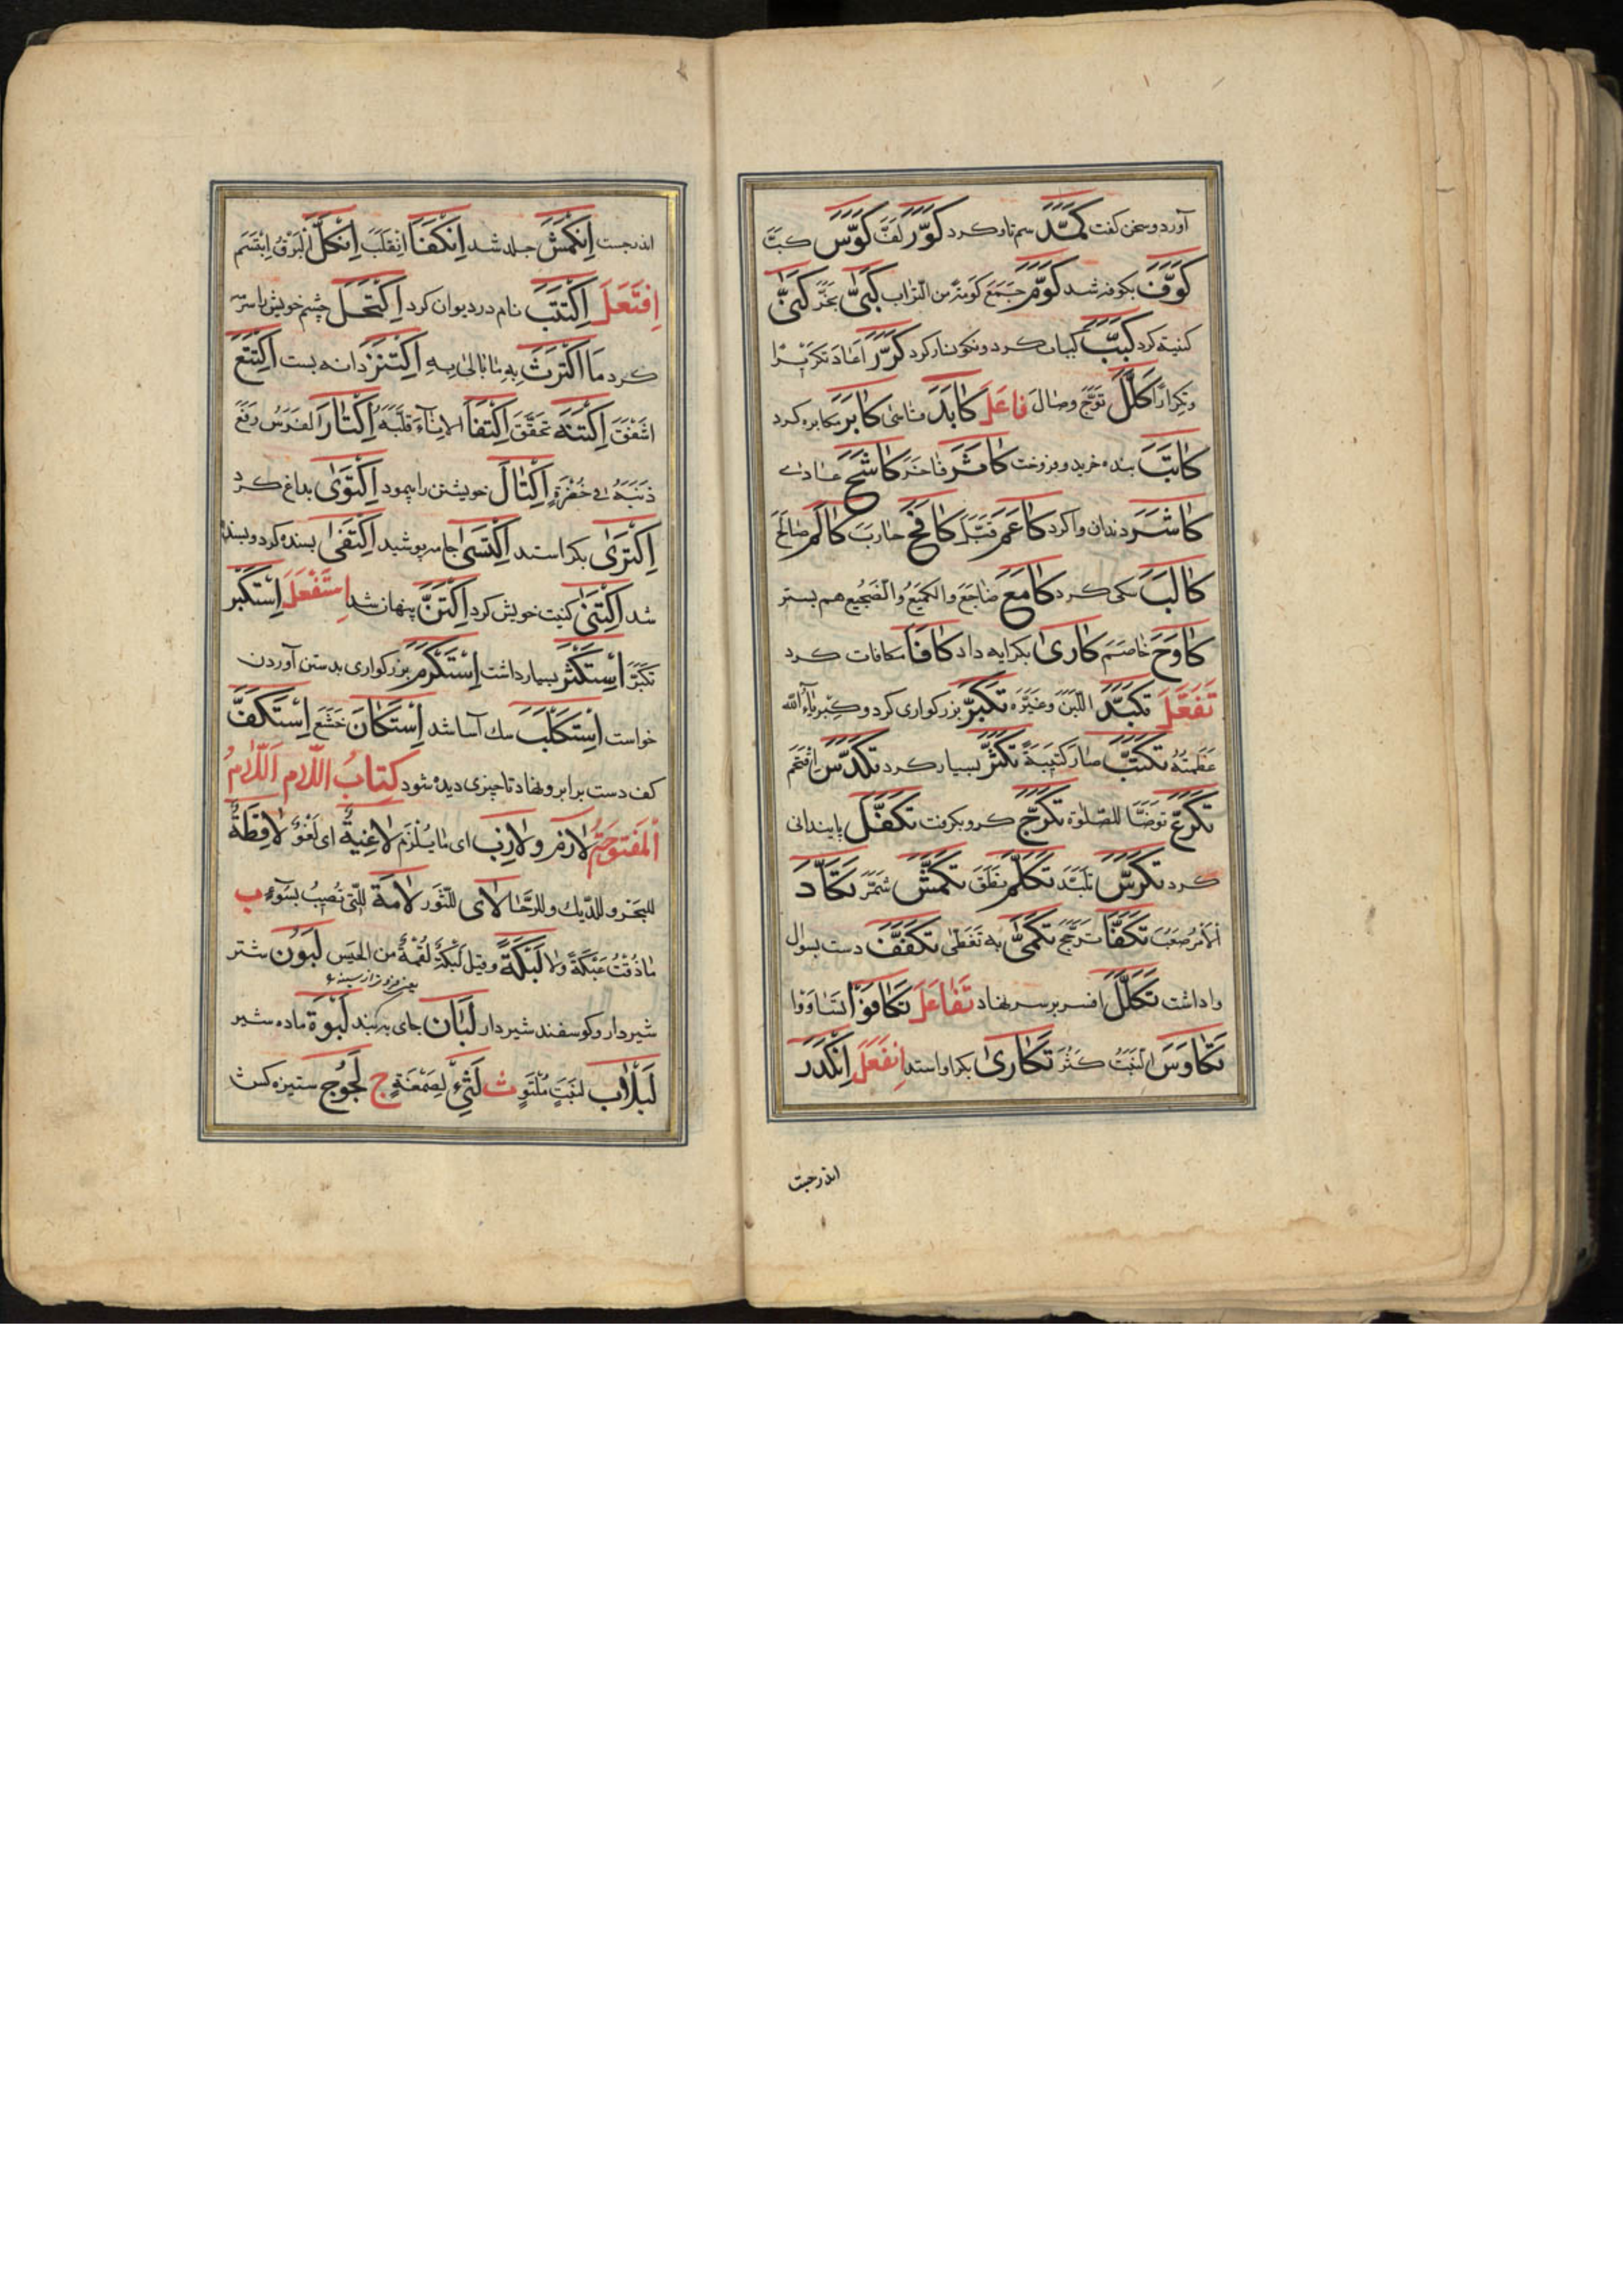 آورد وسخن كفت كَمَّدَ سم ناو كرد كَوَّرَ لَفَّ كَوَّسَ كبَّ
كَوَّفَ بكوفه شد كَوَّمَ جمع كومة من التراب كَبّٰى بخّر كَنّٰى
كنيته كرد كَبَّبَ كباب كرد ونكونسار كرد كَرَّرَ اعاد تكريرا
وتكرارا كَلَّلَ توّج وصال فَاعَلَ كَابَدَ قاسى كَابَرَ مكابره كرد
كَاتَبَ بنده خريد وفروخت كَاثَرَ فاخر كَاشَحَ عادى
كَاشَرَ دندان وا كرد كَاعَمَ قبّل كَافَحَ حارب كَالَمَ صالح
كَالَبَ سكى كرد كَامَعَ ضاجع والكميع والضجيع هم بستر
كَاوَحَ خاصم كَارىٰ بكرايه داد كَافَأَ مكافات كرد
تَفَعَّلَ تَكَبَّدَ اللبن وغيره تَكَبَّرَ بزركوارى كرد وكبرياء الله
عظمته تَكَتَّبَ صار كتيبة تَكَثَّرَ بسيار كرد تَكَدَّسَ اقتحم
تَكَرَّعَ توضّأ للصلوة تَكَرَّجَ كرو بكرفت تَكَفَّلَ پايندانى
كرد تَكَرَّسَ تلبّد تَكَلَّمَ نطق تَكَمَّشَ شمّر تَكَأَّدَ
الامر صعب تَكَفَّأَ ترجّح تَكَمّٰى به تغطّى تَكَفَّفَ دست بسوال
واداشت تَكَلَّلَ افسر بر سر نهاد تَفَاعَلَ تَكَافَؤا تساووا
تَكَاوَسَ النبت كثر تَكَارىٰ بكرا واستد اِنْفَعَلَ اِنْكَدَرَ
اندرجست
اندرجست اِنْكَمَشَ جلد شد اِنْكَفَأَ انقلب اِنْكَلَّ البرق ابتسم
اِفْتَعَلَ اِكْتَتَبَ نام در ديوان كرد اِكْتَحَلَ چشم خويش باسرمه
كرد مَا اكْتَرَثَ به ما بالى به اِكْتَنَزَ دانه بست اِكْتَنَعَ
اشفق اِكْتَنَهَ تحقّق اِكْتَفَأَ الاناء قلّبه اِكْتَارَ الفرس رفع
ذنبه فى حُضْره اِكْتَالَ خويشتن را پيمود اِكْتَوىٰ بداغ كرد
اِكْتَرىٰ بكرا ستد اِكْتَسىٰ جامه پوشيد اِكْتَفىٰ بسنده كرد وبسنده
شد اِكْتَنىٰ كنيت خويش كرد اِكْتَنَّ پنهان شد اِسْتَفْعَلَ اِسْتَكْبَرَ
تكبّر اِسْتَكْثَرَ بسيار داشت اِسْتَكْرَمَ بزركوارى بدست آوردن
خواست اِسْتَكْلَبَ سك آسا شد اِسْتَكَانَ خشع اِسْتَكَفَّ
كف دست برابرو نهاد تا چيزى ديده شود كِتَابُ اللَّامِ اَللَّامُ
اَلْمَفْتُوحَةُ لَازِم ولَازِب اى ما يلزم لَاغِيَةٌ اى لغو لَافِظَةٌ
للبحر وللديك وللرحا لَاى للثور لَامَّة للتى تصيب بسوء ب
ما ذقت عبكة ولا لَبَكَة وقيل لبكة لقمة من الحيس لَبُون شتر
شيردار وكوسفند شيردار لَبَان جاى بر بند لَبُوَة ماده شير
لَبْلَاب لنبت ملتو ث لَثىً لصمغة ج لَجُوج ستيزه كش